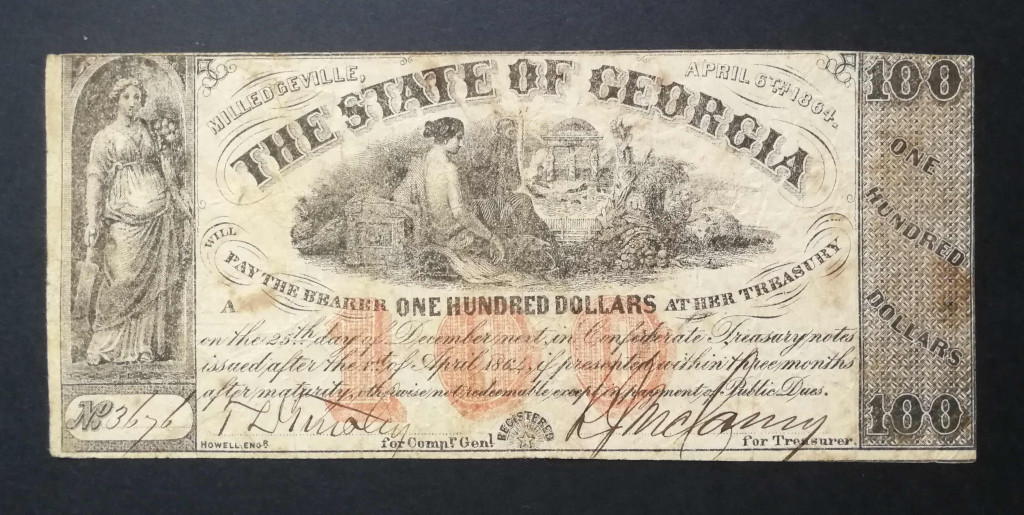 MILLEDGEVILLE, APRIL 6TH 1864.
THE STATE OF GEORGIA
WILL
PAY THE BEARER ONE HUNDRED DOLLARS AT HER TREASURY
A
100
on the 25th day of December next, in Confederate Treasury notes
issued after the 1st of April 1864, if presented within three months
after maturity, otherwise not redeemable except in payment of Public Dues.
No 3676
for Compr. Genl.
REGISTERED
for Treasurer.
HOWELL, ENGR.
100
ONE
HUNDRED
DOLLARS
100